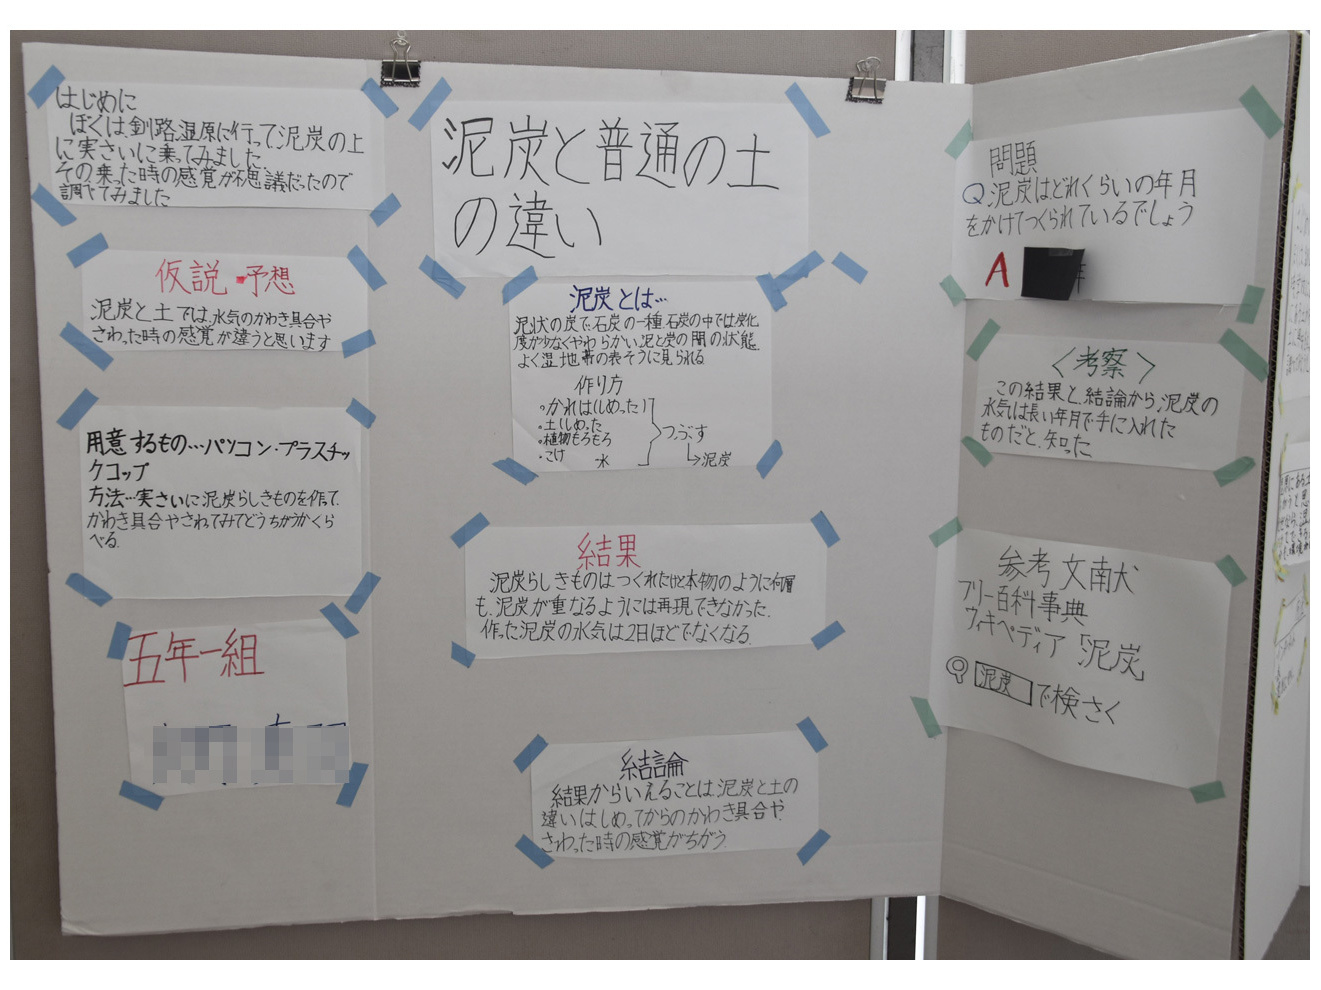 はじめに
ぼくは、釧路湿原に行って泥炭の上
に実さいに乗ってみました。
その乗った時の感覚が不思議だったので
調べてみました
仮説・予想
泥炭と土では、水気のかわき具合や
さわった時の感覚が違うと思います
用意するもの…パソコン・プラスチッ
クコップ
方法…実さいに泥炭らしきものを作って、
かわき具合やさわってみてどうちがうかくら
べる。
五年一組
泥炭と普通の土
の違い
泥炭とは…
泥状の炭で、石炭の一種。石炭の中では炭化
度が少なくやわらかい泥と炭の間の状態。
よく湿地帯の表そうに見られる
作り方
・かれは(しめった)
・土(しめった
・植物もろもろ
・こけ 水
つぶす
→泥炭
結果
泥炭らしきものはつくれたけど本物のように何層
も、泥炭が重なるようには再現できなかった。
作った泥炭の水気は2日ほどでなくなる。
結論
結果からいえることは、泥炭と土の
違いはしめってからのかわき具合や、
さわった時の感覚がちがう
問題
Q泥炭はどれくらいの年月
をかけてつくられているでしょう
A
〈考察〉
この結果と、結論から、泥炭の
水気は長い年月で手に入れた
ものだと、知った。
参考文献
フリー百科事典
ウィキペディア「泥炭」
泥炭で検さく